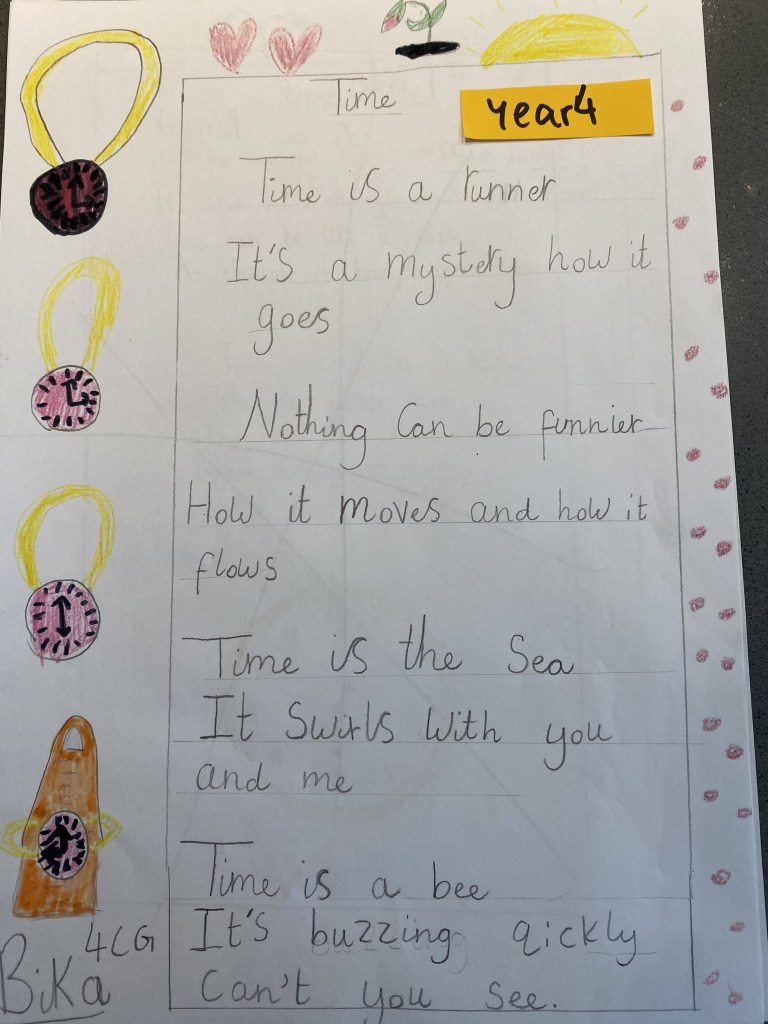 Time
year4
Time is a runner
It's a mystery how it
goes
Nothing Can be funnier
How it moves and how it
flows
Time is the Sea
It Swirls With you
and me
Time is a bee
It's buzzing qickly
Can't you see.
4CG
Bika